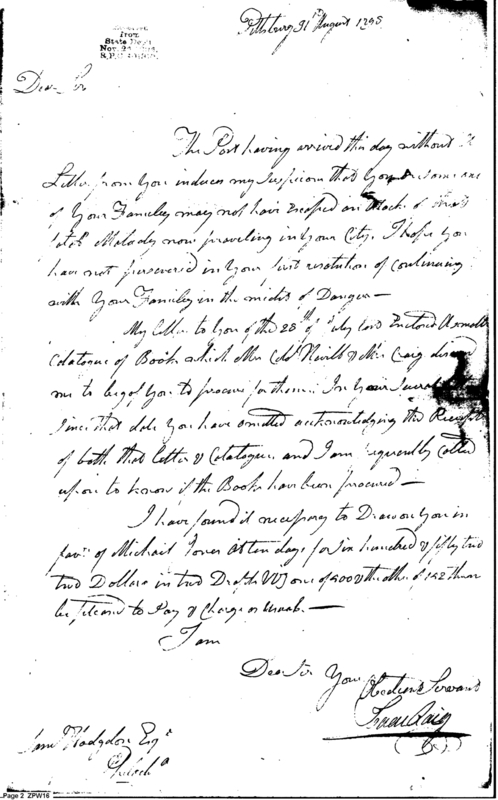 Received
from
State Dept
Pittsburg 31st August 1798
Dear Sir
The Post having arrived this day without a
Letter from You induces my Suspicion that You or some one
of Your Family may not have Escaped an attack of that
Malady now prevailing in Your City. I hope you
have not persevered in Your first resolution of continuing
with Your Family in the midst of Danger —
My Letter to You of the 28th of July last Enclosed a small
Catalogue of Books which Mrs Col. Nevill & Mrs Craig desired
me to beg of You to procure for them. In Your
Since that date You have omitted acknowledging the Receipt
of both that letter & Catalogue, and I am frequently called
upon to know if the Books have been procured —
I have found it necessary to Draw on You in
favr. of Michael Jones at ten days for Six hundred & fifty two
two Dollars in two Drafts one of 500 & the other of 152 them
be pleased to Pay & Charge as usual. —
I am
Dear Sir Your Obedient Servant
Isaac Craig
Saml Hodgdon Esqr
Philada
Page 2 ZPW16